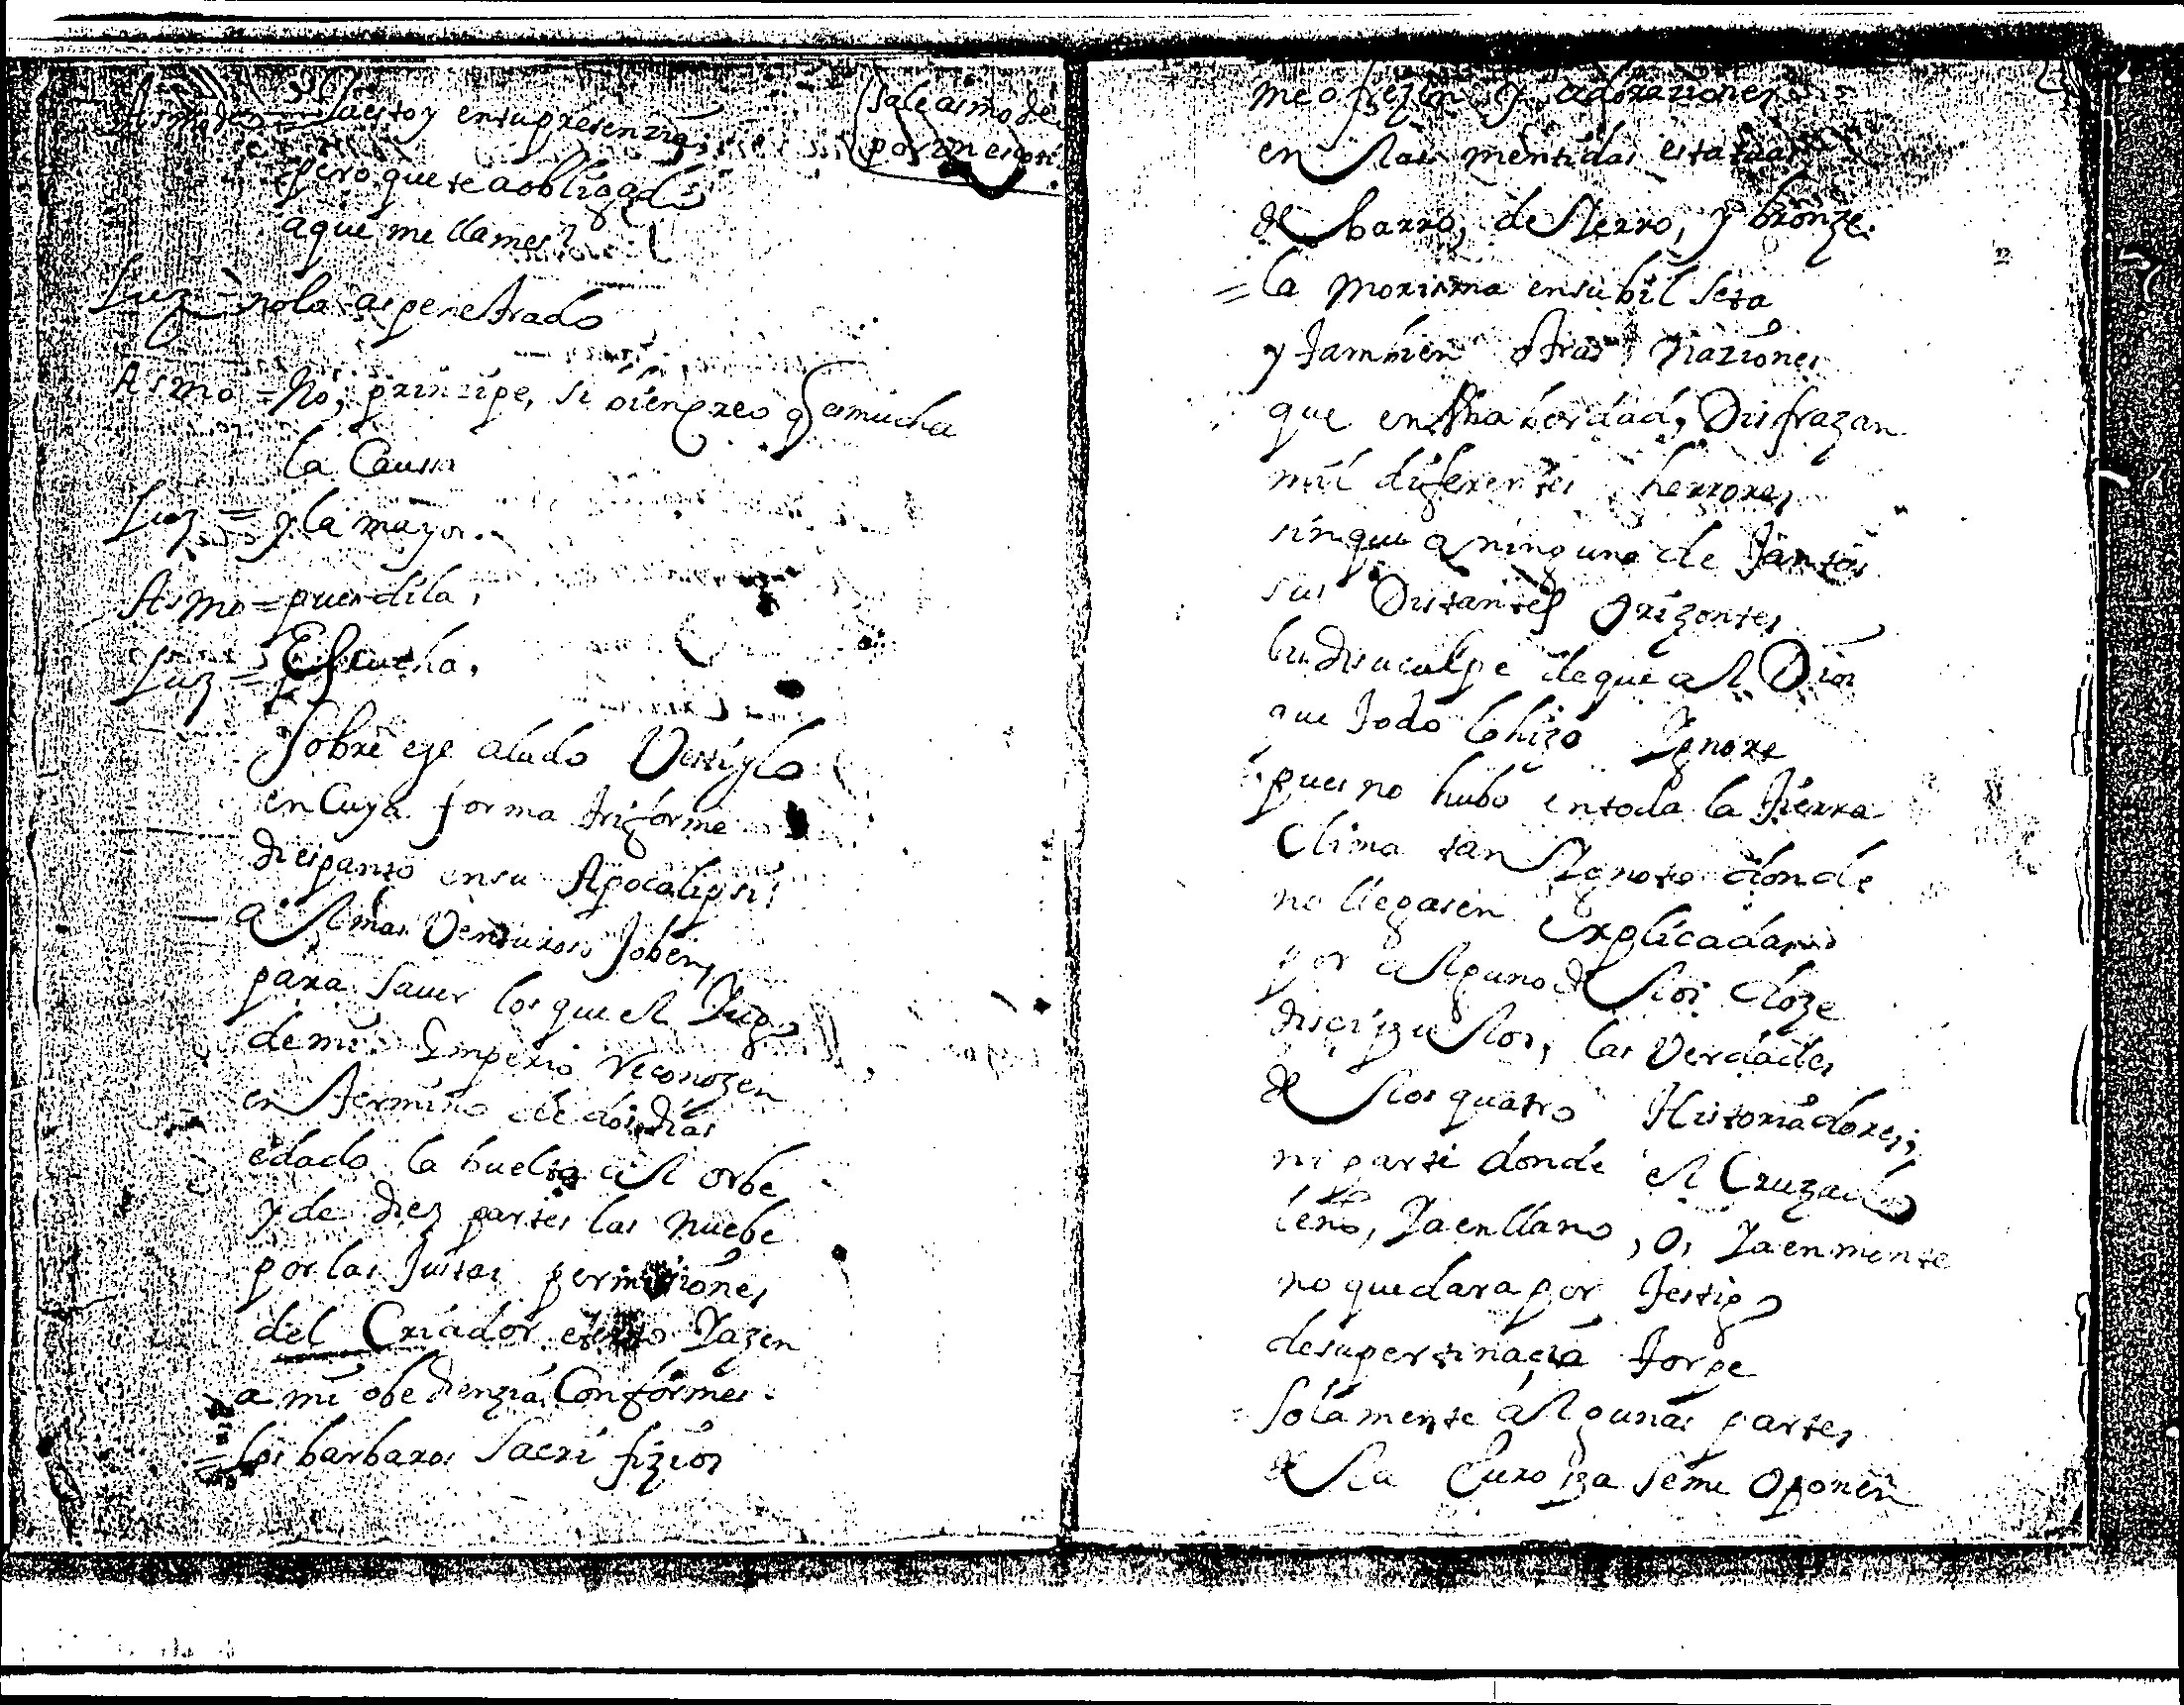 Asmodeo = Ia estoy en tu presenzia,
sale asmode
por un escoti
pero que te a obligado
a que me llames?
Luz = no la as penetrado
Asmo = No, prinzipe, si bien creo q es mucha
la Causa
Luz = y la mayor.
Asmo = pues dila,
Luz = Escucha,
Sobre ese alado Vestiglo
en Cuya forma triforme
dio espanto en su Apocalipsis
a el mas Venturoso Joben,
para sauer los que el Iugo
de mi Imperio Reconozen
en termino de dos dias
e dado la buelta a el orbe
y de diez partes las nuebe
por las Justas permisiones
del Criador eterno Yazen
a mi obedienzia Conformes
= los barbaros Sacrifizios
me ofrezen y adoraziones
en las mentidas estatuas
de barro, de yerro, y bronze
= la morisma en su bil seta
y tambien otras naziones
que en la berdad, Disfrazan
mil diferentes herrores
sin que a ninguno de tantos
sus Distantes Orizontes
les disculpe de que a el Dios
que todo lo hizo Ignore
pues no hubo en toda la tierra
Clima tan Ignoto donde
no llegasen explicadas
por alguno de los doze
diszipulos, las Verdades
de los quatro Historiadores,
ni parte donde el Cruzado
leño, Ya en llano, o, Ya en monte
no quedara por testigo
de su pertinazia torpe
Solamente algunas partes
de la Europa se me Oponen